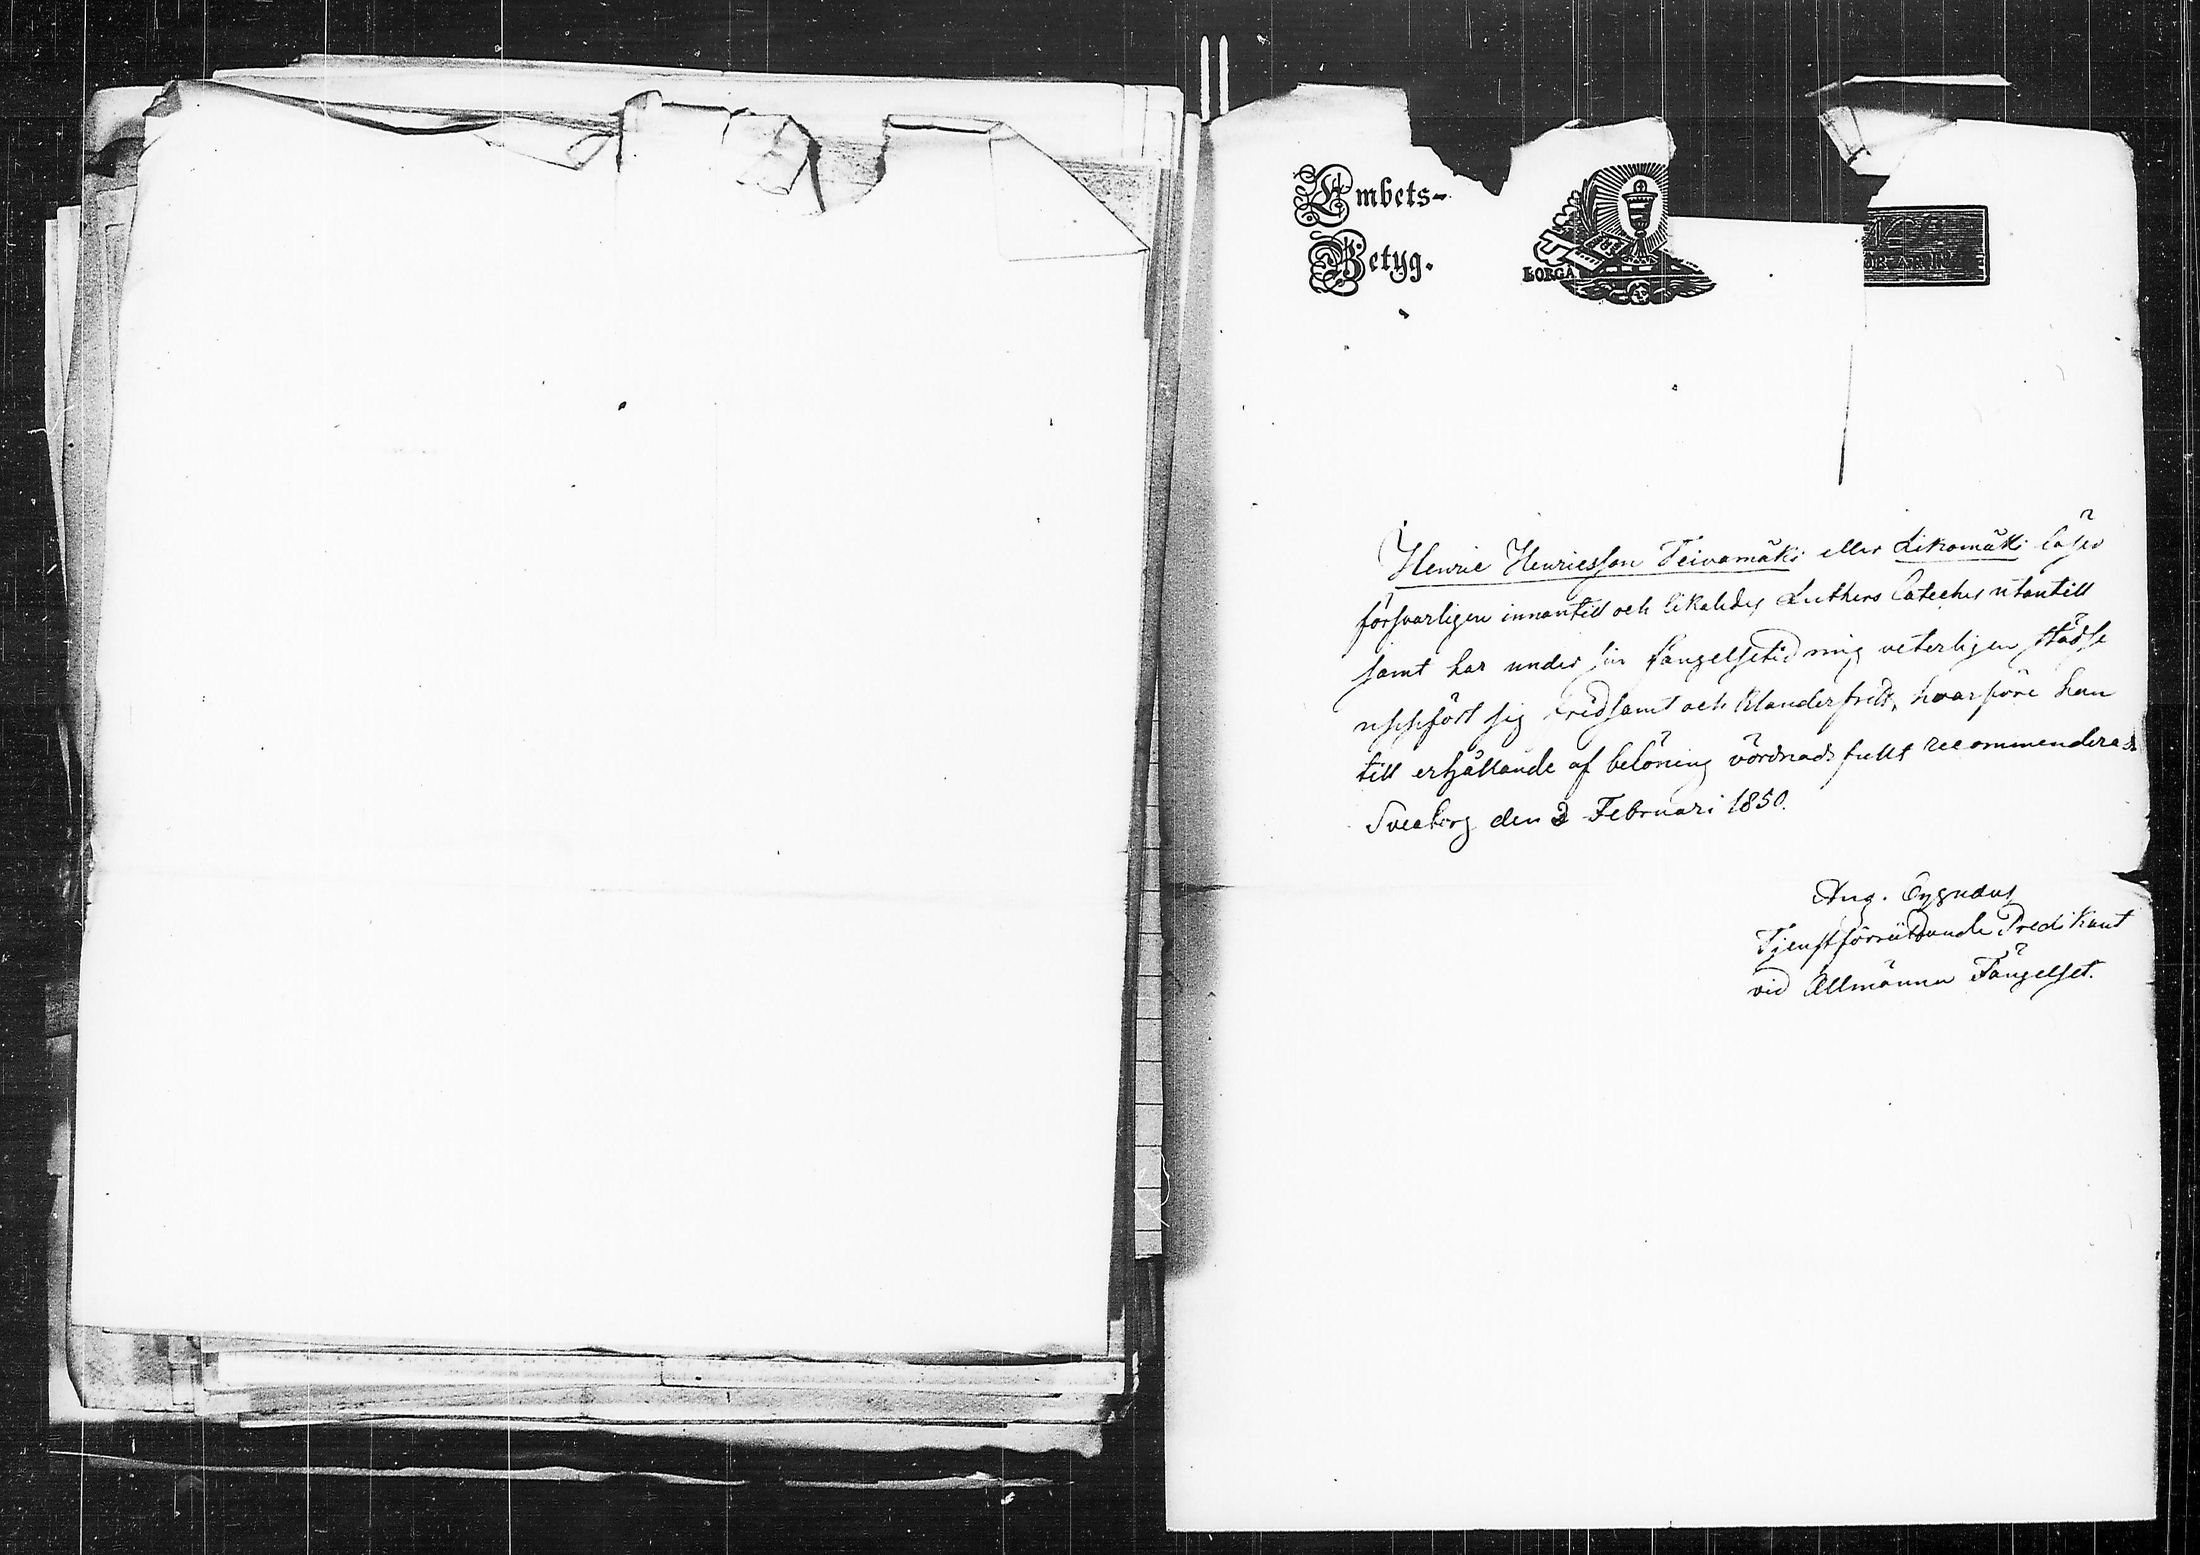 Embets-
Betyg.
BORGÅ
Henric Henricsson Teivamäki eller Likomäki läser
försvarligen innantill och likaledes Luthers Cateches utantill
samt har under sin fängelsetid mig veterligen städse
uppfört sig fridsamt och klanderfritt, hvarföre han
till erhållande af belöning vördnadsfullt recommenderas
Sveaborg den 2 Februari 1850.
Aug. Cygnæus
Tjenstförrättande Predikant
vid Allmänna Fängelset.